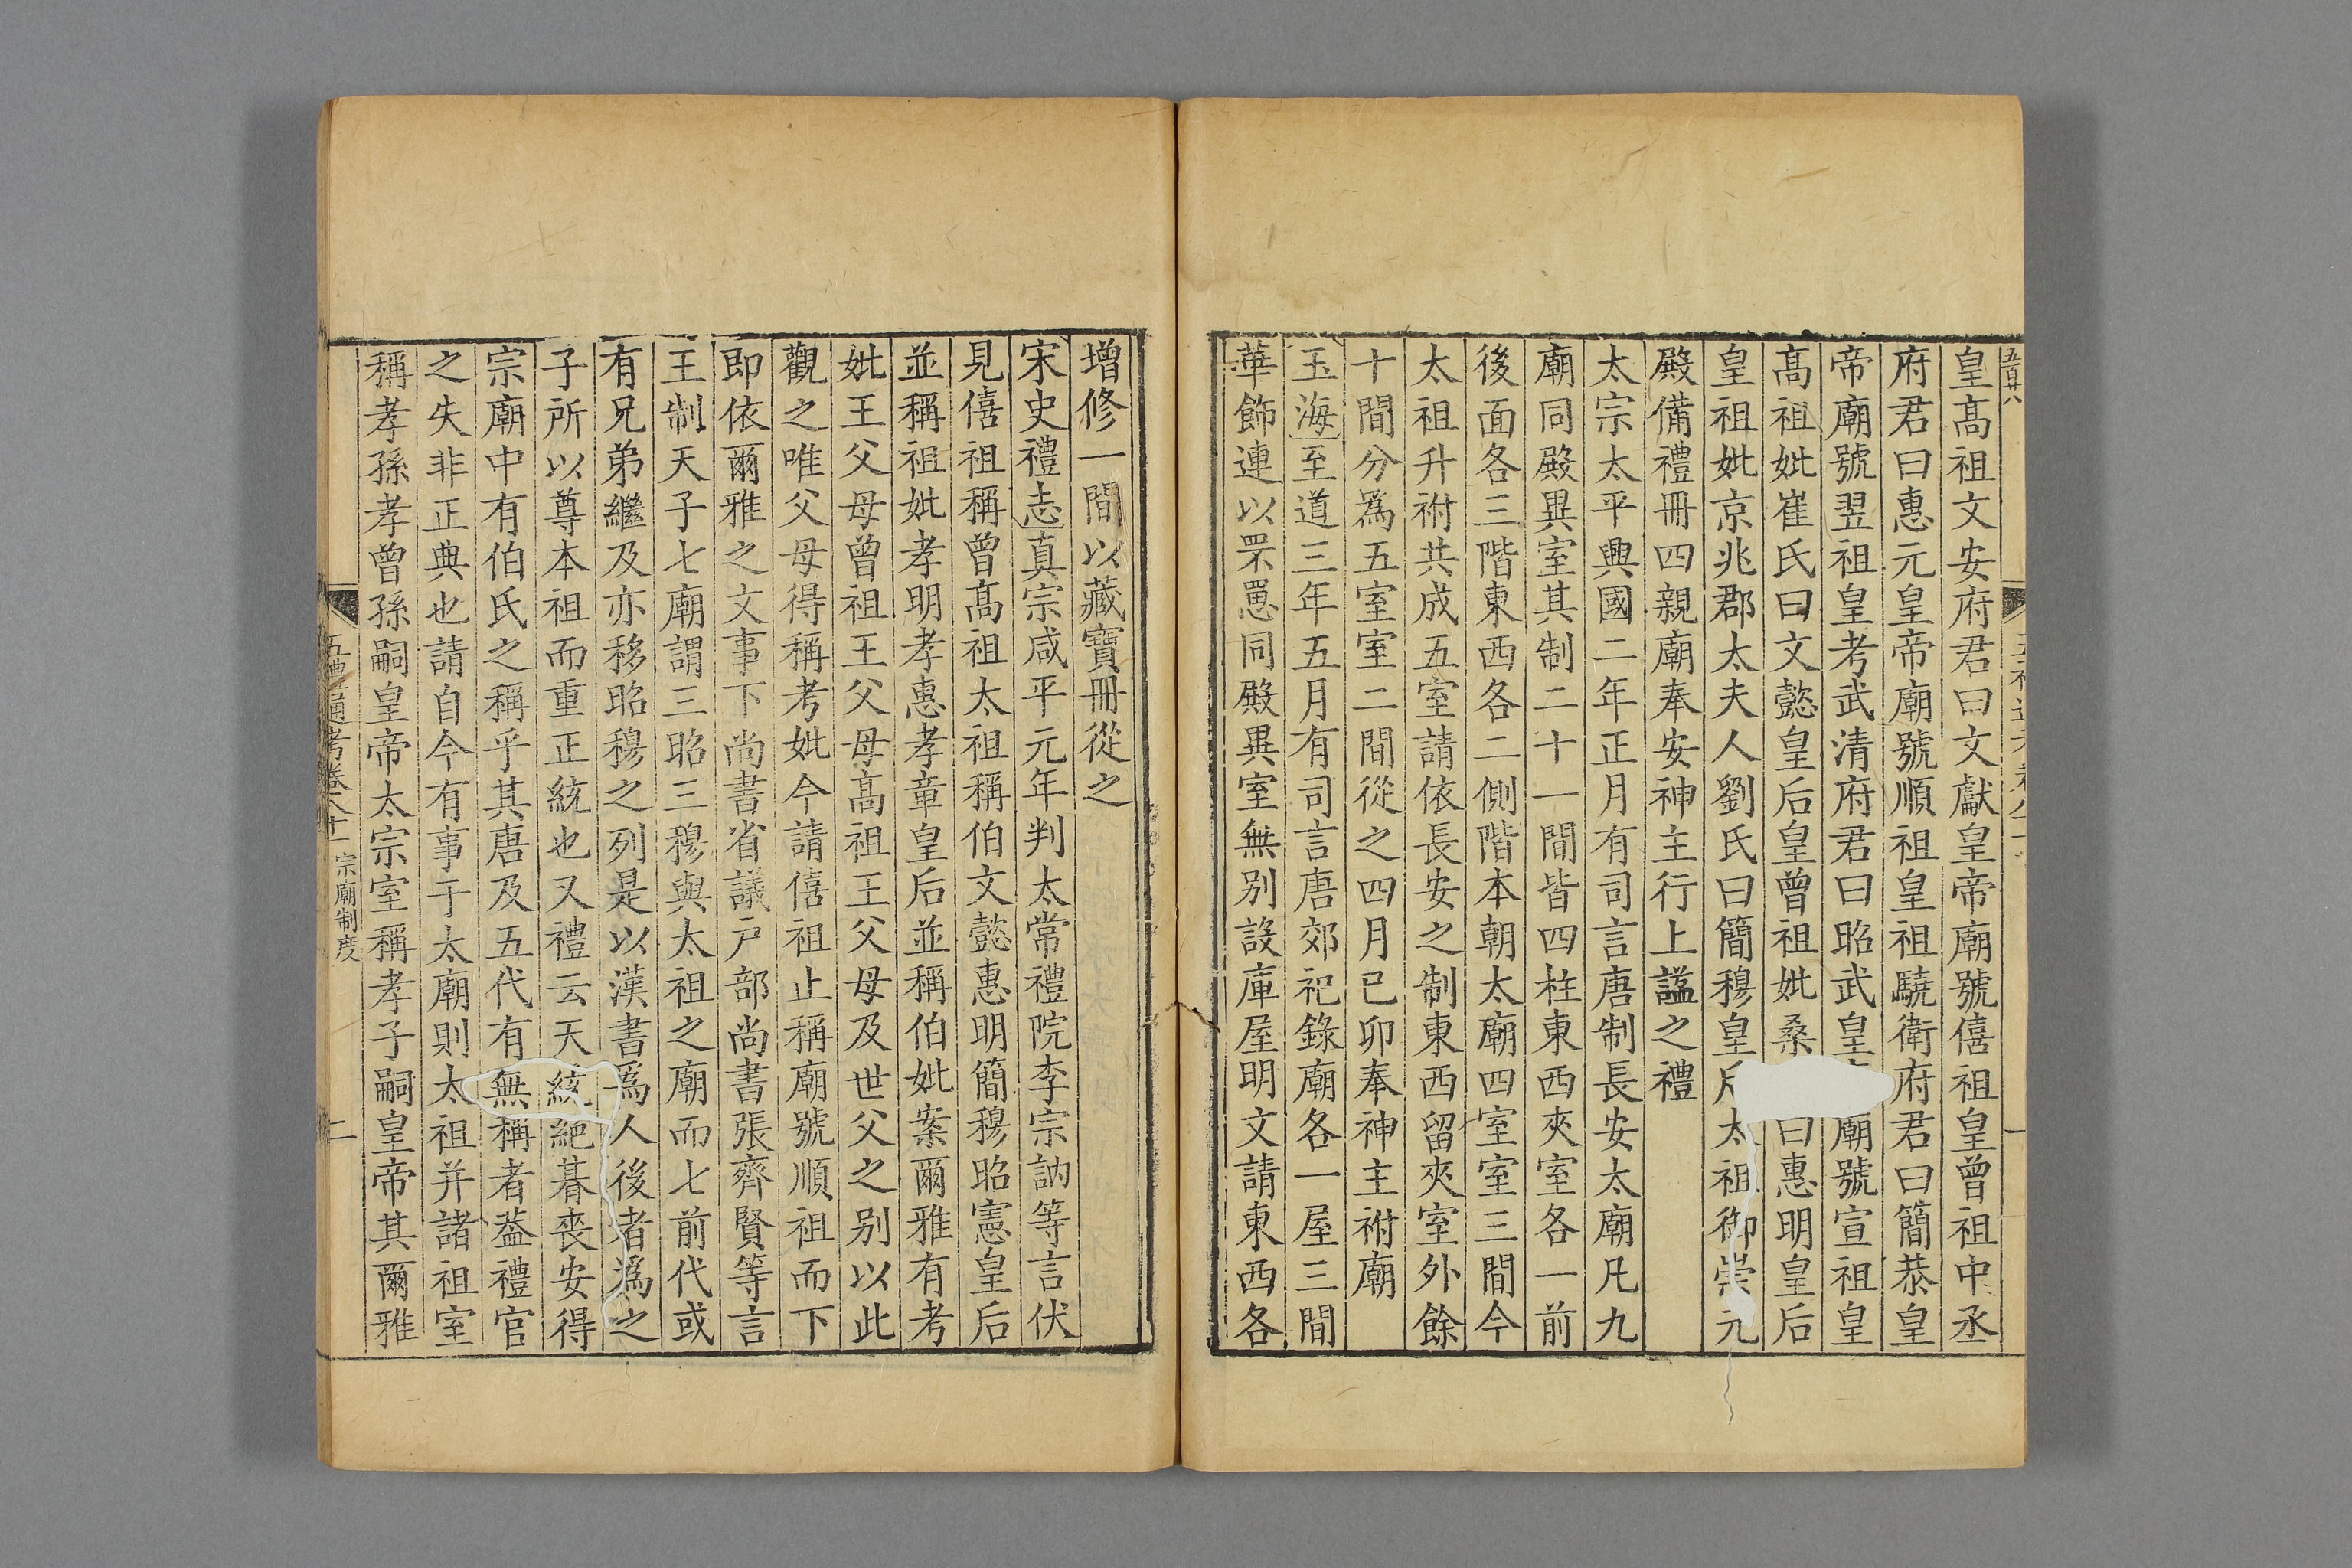 五百廿八
皇高祖文安府君曰文獻皇帝廟號僖祖皇曾祖中丞
府君曰惠元皇帝廟號順祖皇祖驍衛府君曰簡恭皇
帝廟號翌祖皇考武清府君曰昭武皇廟號宣祖皇
高祖妣崔氏曰文懿皇后皇曾祖妣桑曰惠明皇后
皇祖妣京兆郡太夫人劉氏曰簡穆皇后太祖御崇元
殿備禮冊四親廟奉安神主行上謚之禮
太宗太平興國二年正月有司言唐制長安太廟凡九
廟同殿異室其制二十一間皆四柱東西夾室各一前
後面各三階東西各二側階本朝太廟四室室三間今
太祖升祔共成五室請依長安之制東西留夾室外餘
十間分爲五室室二間從之四月已卯奉神主祔廟
玉海至道三年五月有司言唐郊祀錄廟各一屋三間
華飾連以罘罳同殿異室無別設庫屋明文請東西各
增修一間以藏寶冊從之
宋史禮志真宗咸平元年判太常禮院李宗訥等言伏
見僖祖稱曾高祖太祖稱伯文懿惠明簡穆昭憲皇后
並稱祖妣孝明孝惠孝章皇后並稱伯妣案爾雅有考
妣王父母曾祖王父母高祖王父母及世父之别以此
觀之唯父母得稱考妣今請僖祖止稱廟號順祖而下
即依爾雅之文事下尚書省議戸部尚書張齊賢等言
王制天子七廟謂三昭三穆與太祖之廟而七前代或
有兄弟繼及亦移昭穆之列是以漢書爲人後者爲之
子所以尊本祖而重正統也又禮云天統絕朞喪安得
宗廟中有伯氏之稱乎其唐及五代有無稱者葢禮官
之失非正典也請自今有事于太廟則太祖并諸祖室
稱孝孫孝曾孫嗣皇帝太宗室稱孝子嗣皇帝其爾雅
五禮通考卷八十一 宗廟制度 二